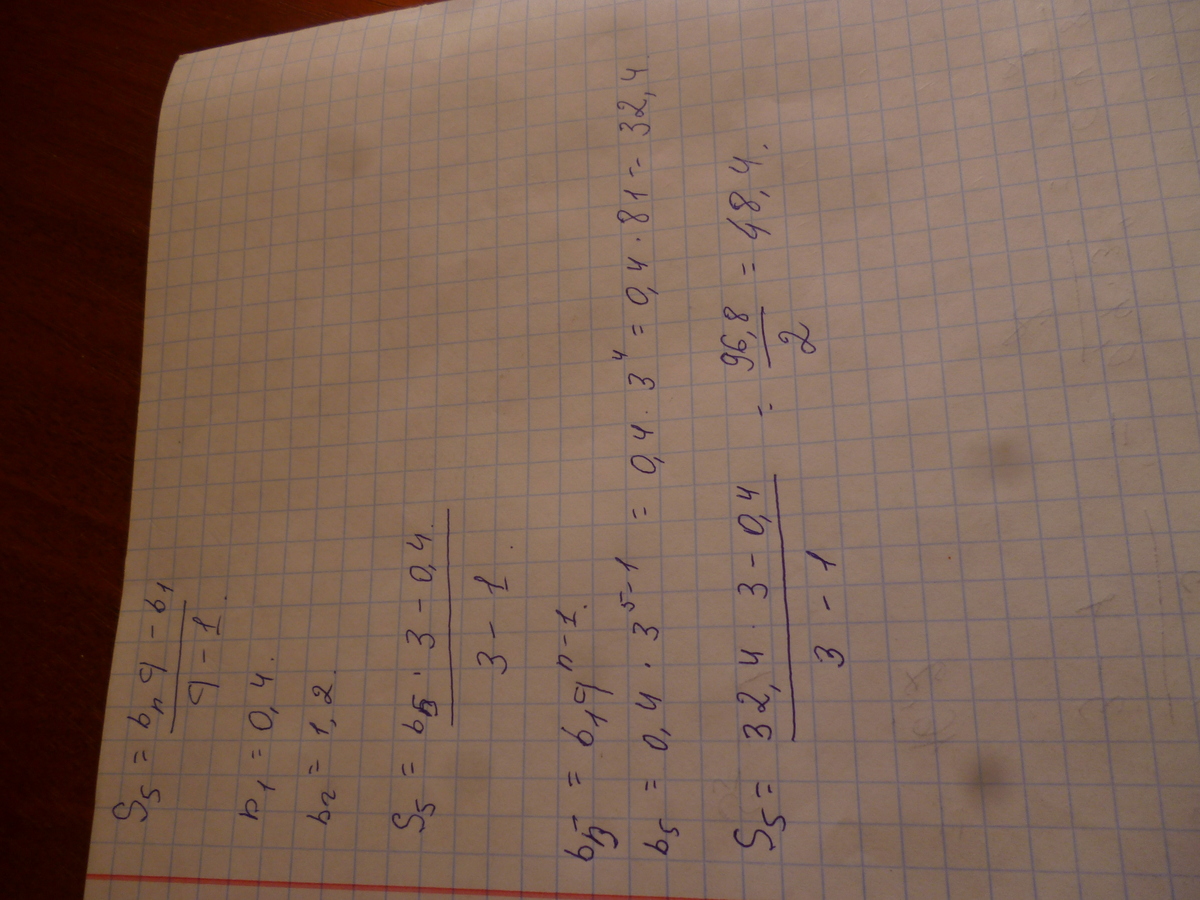 S₅ = (bₙq - b₁)/(q - 1).
b₁ = 0,4.
b₂ = 1,2.
S₅ = (b₅ · 3 - 0,4.)/(3 - 1).
b₅ = b₁qⁿ⁻¹.
b₅ = 0,4 · 3⁵⁻¹ = 0,4 · 3⁴ = 0,4 · 81 = 32,4
S₅ = (32,4 · 3 - 0,4)/(3 - 1) = 96,8/2 = 48,4.